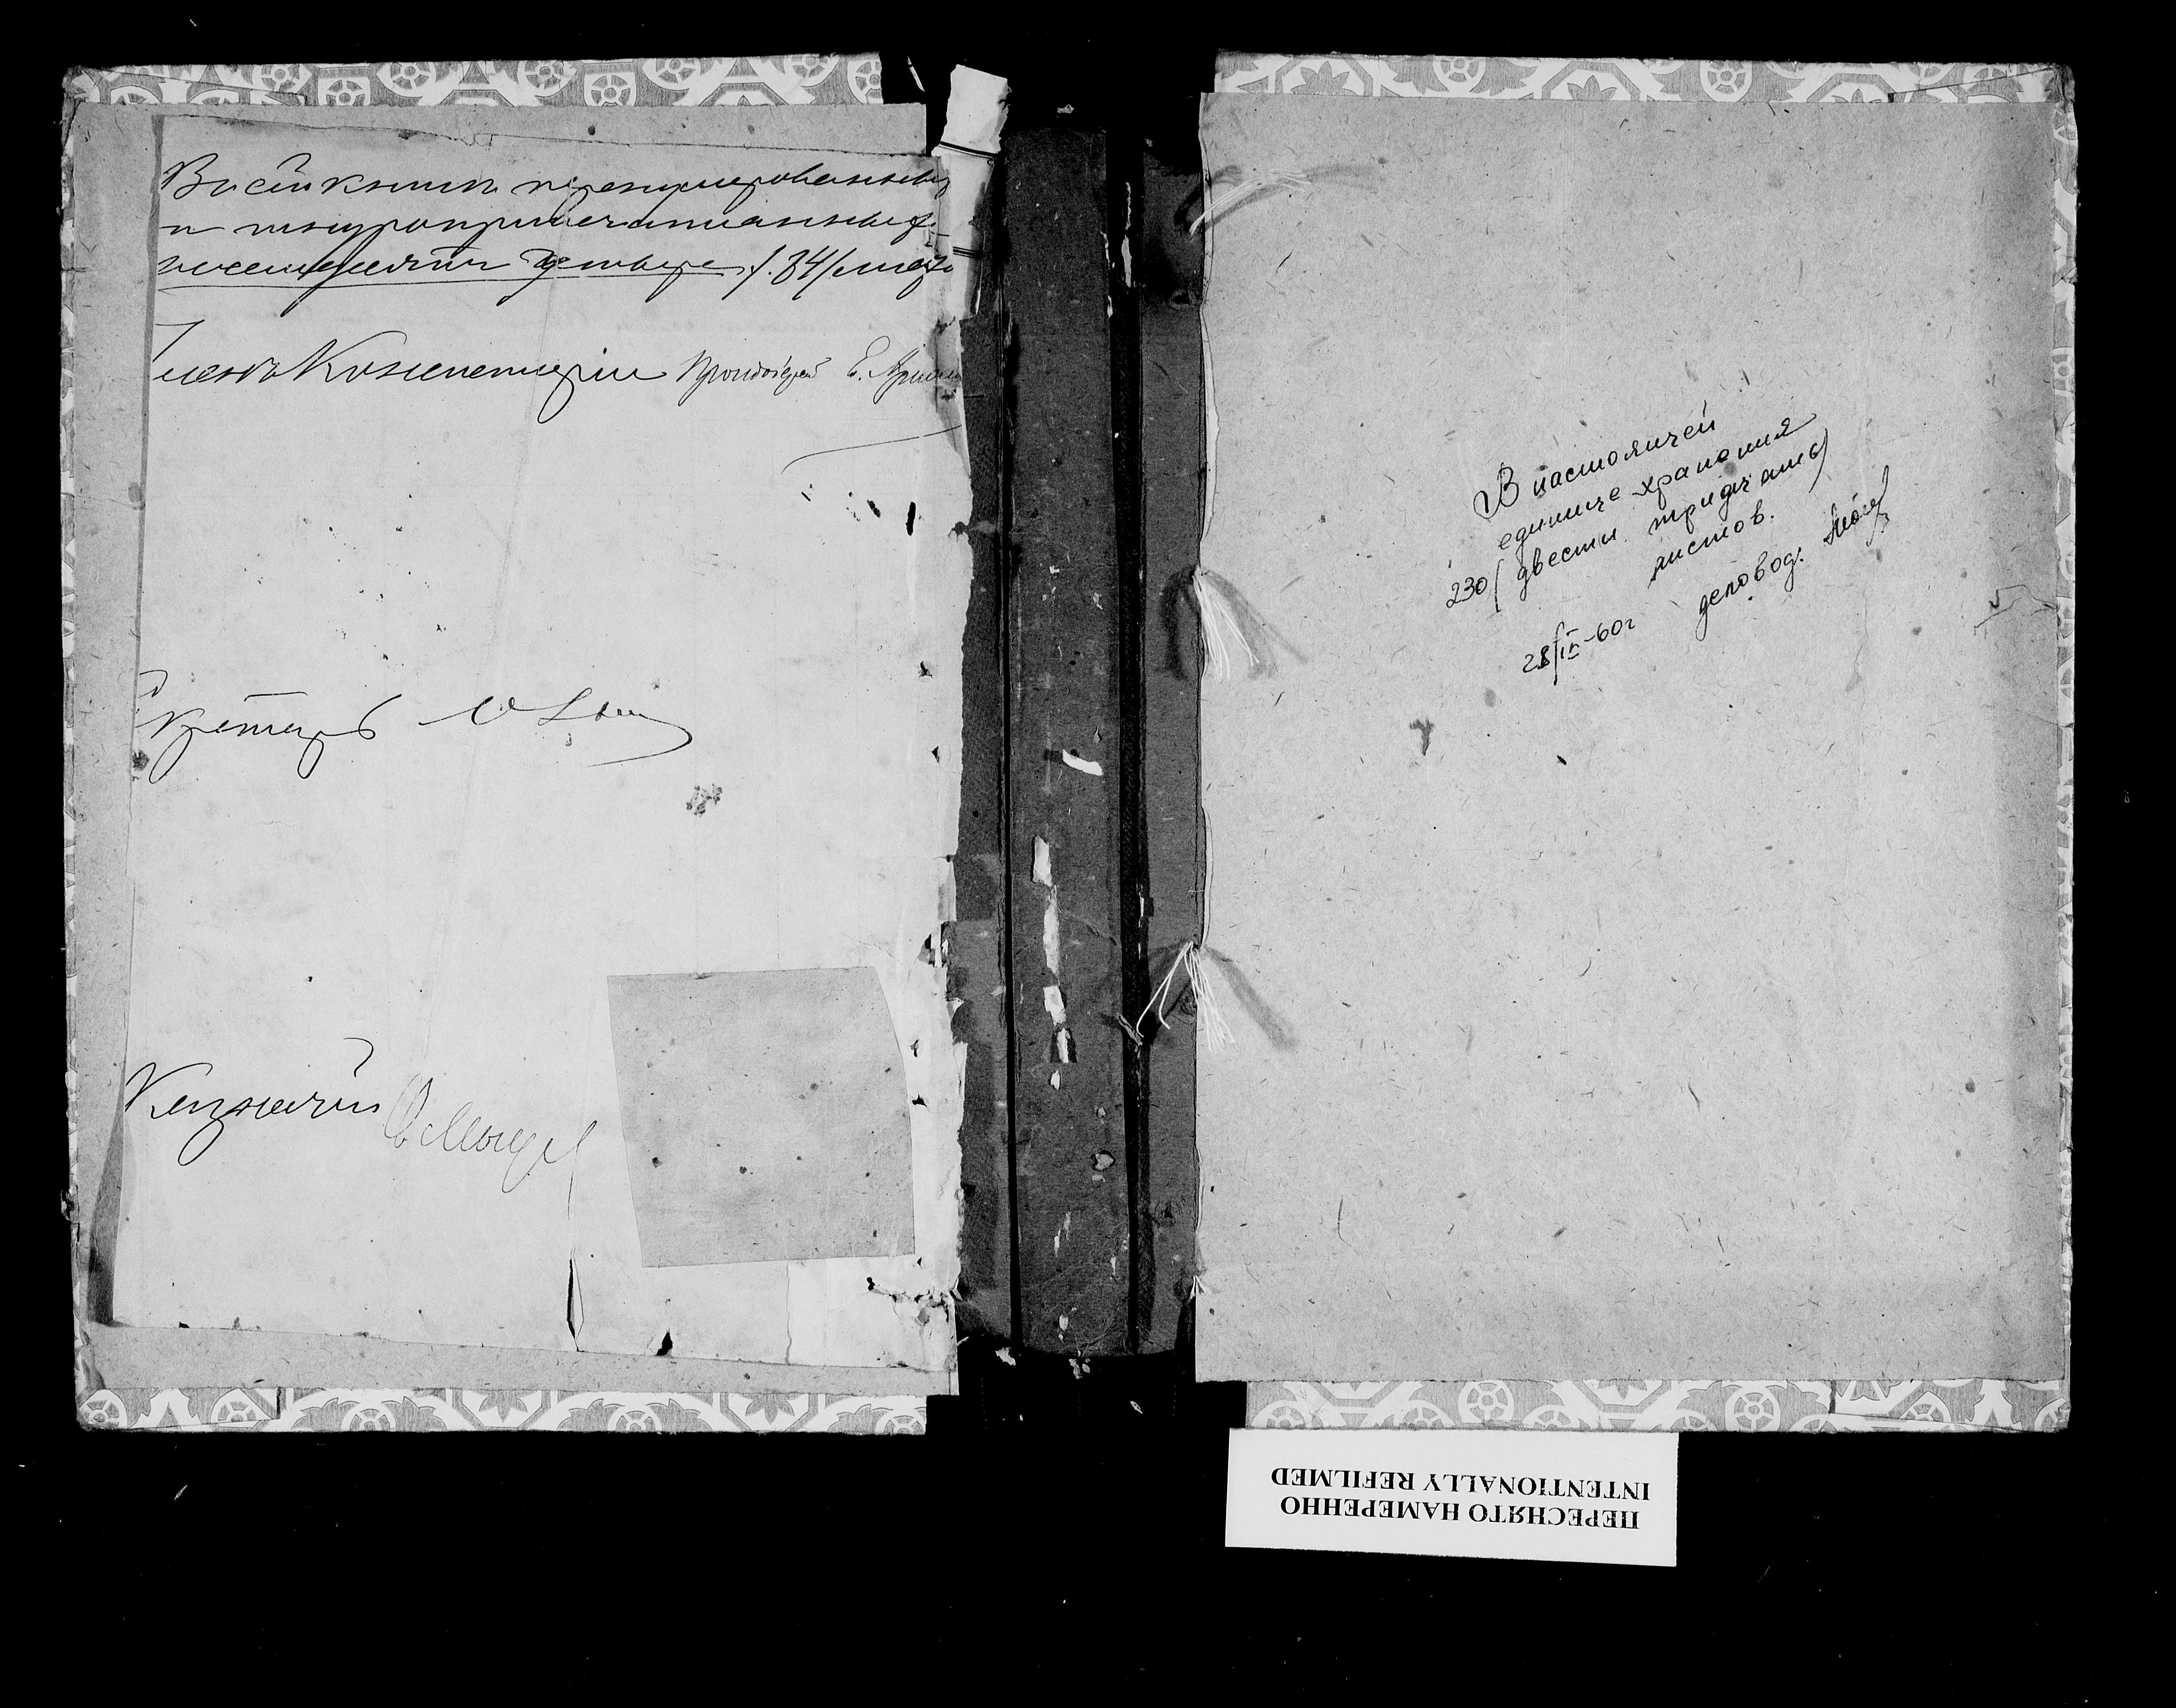 В сей книги пронумерованныхъ
и шнуроприпечатанныхъ
восемьдесятъ четыре /84/ листа
Членъ Консисторіи Протоіерей Е.
Секретарь
Казначей
В настоящей
единице хранения
230 (двести тридцать)
листов.
28/IV-60г деловод.
ПЕРЕСНЯТО НАМЕРЕННО
INTENTIONALLY REFILMED